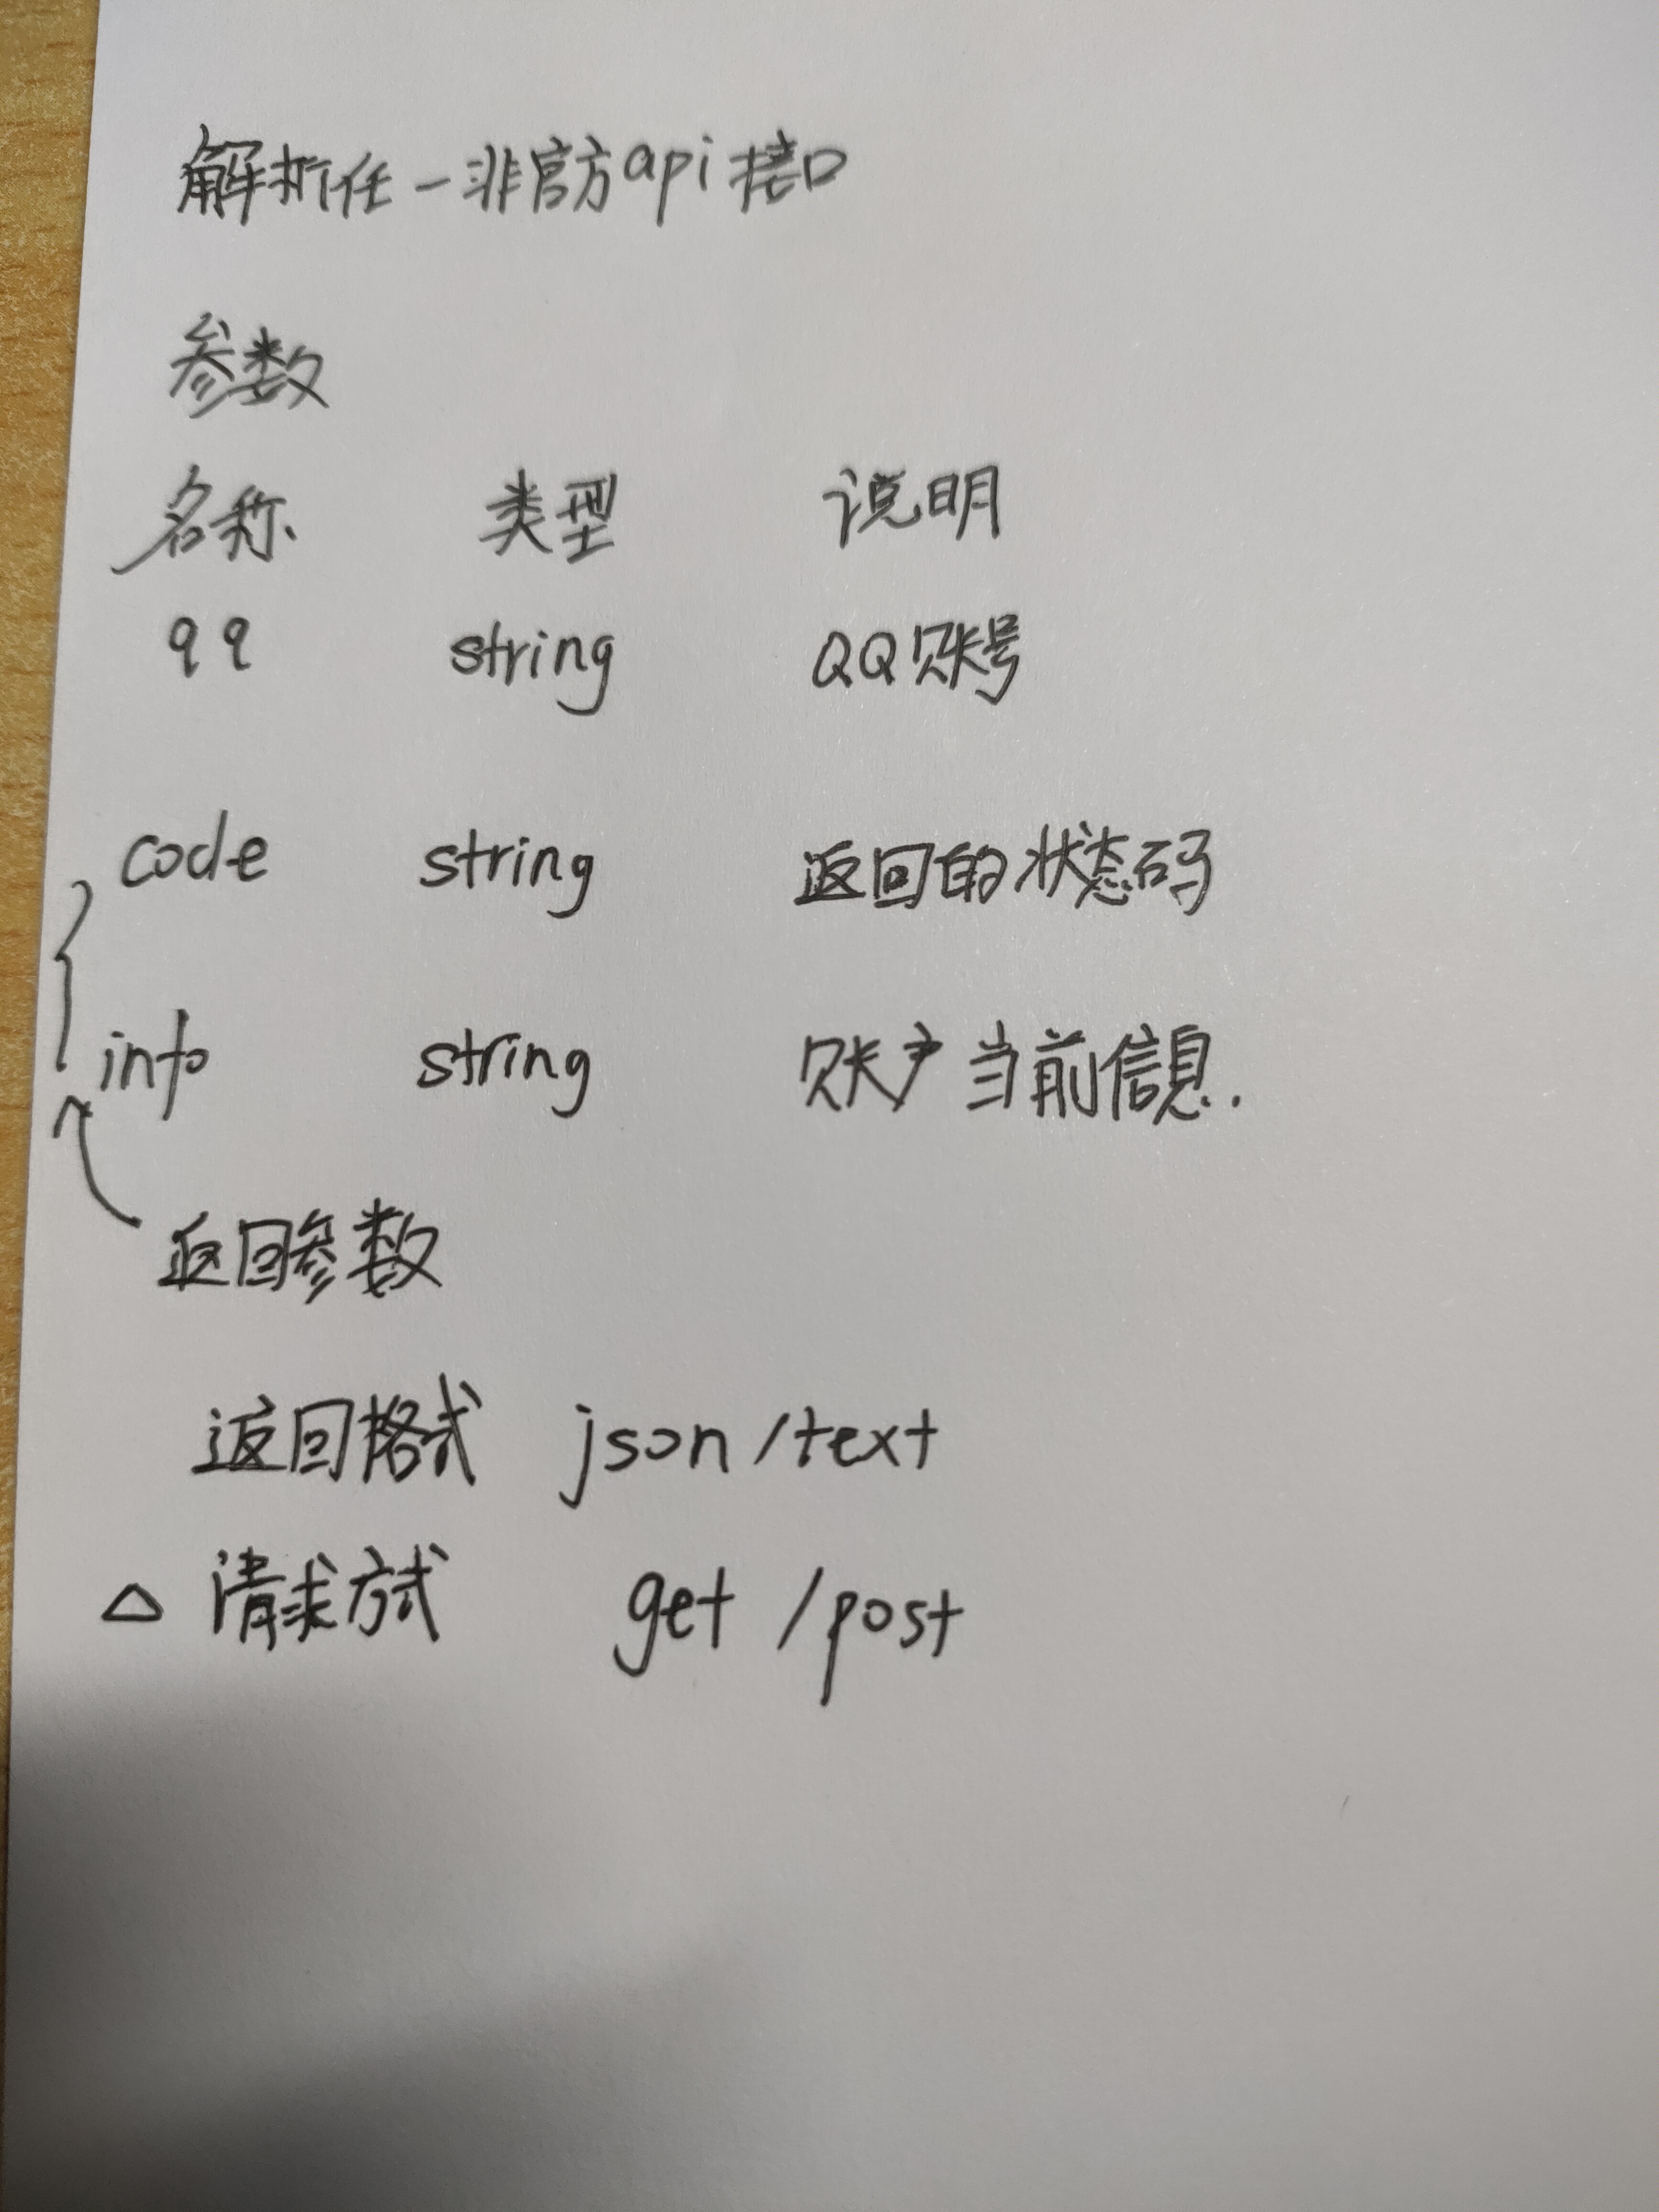 解析任一非官方api接口
参数
名称 类型 说明
qq string QQ账号
code string 返回的状态码
info string 账户当前信息.
返回参数
返回格式 json/text
△ 请求方式 get/post